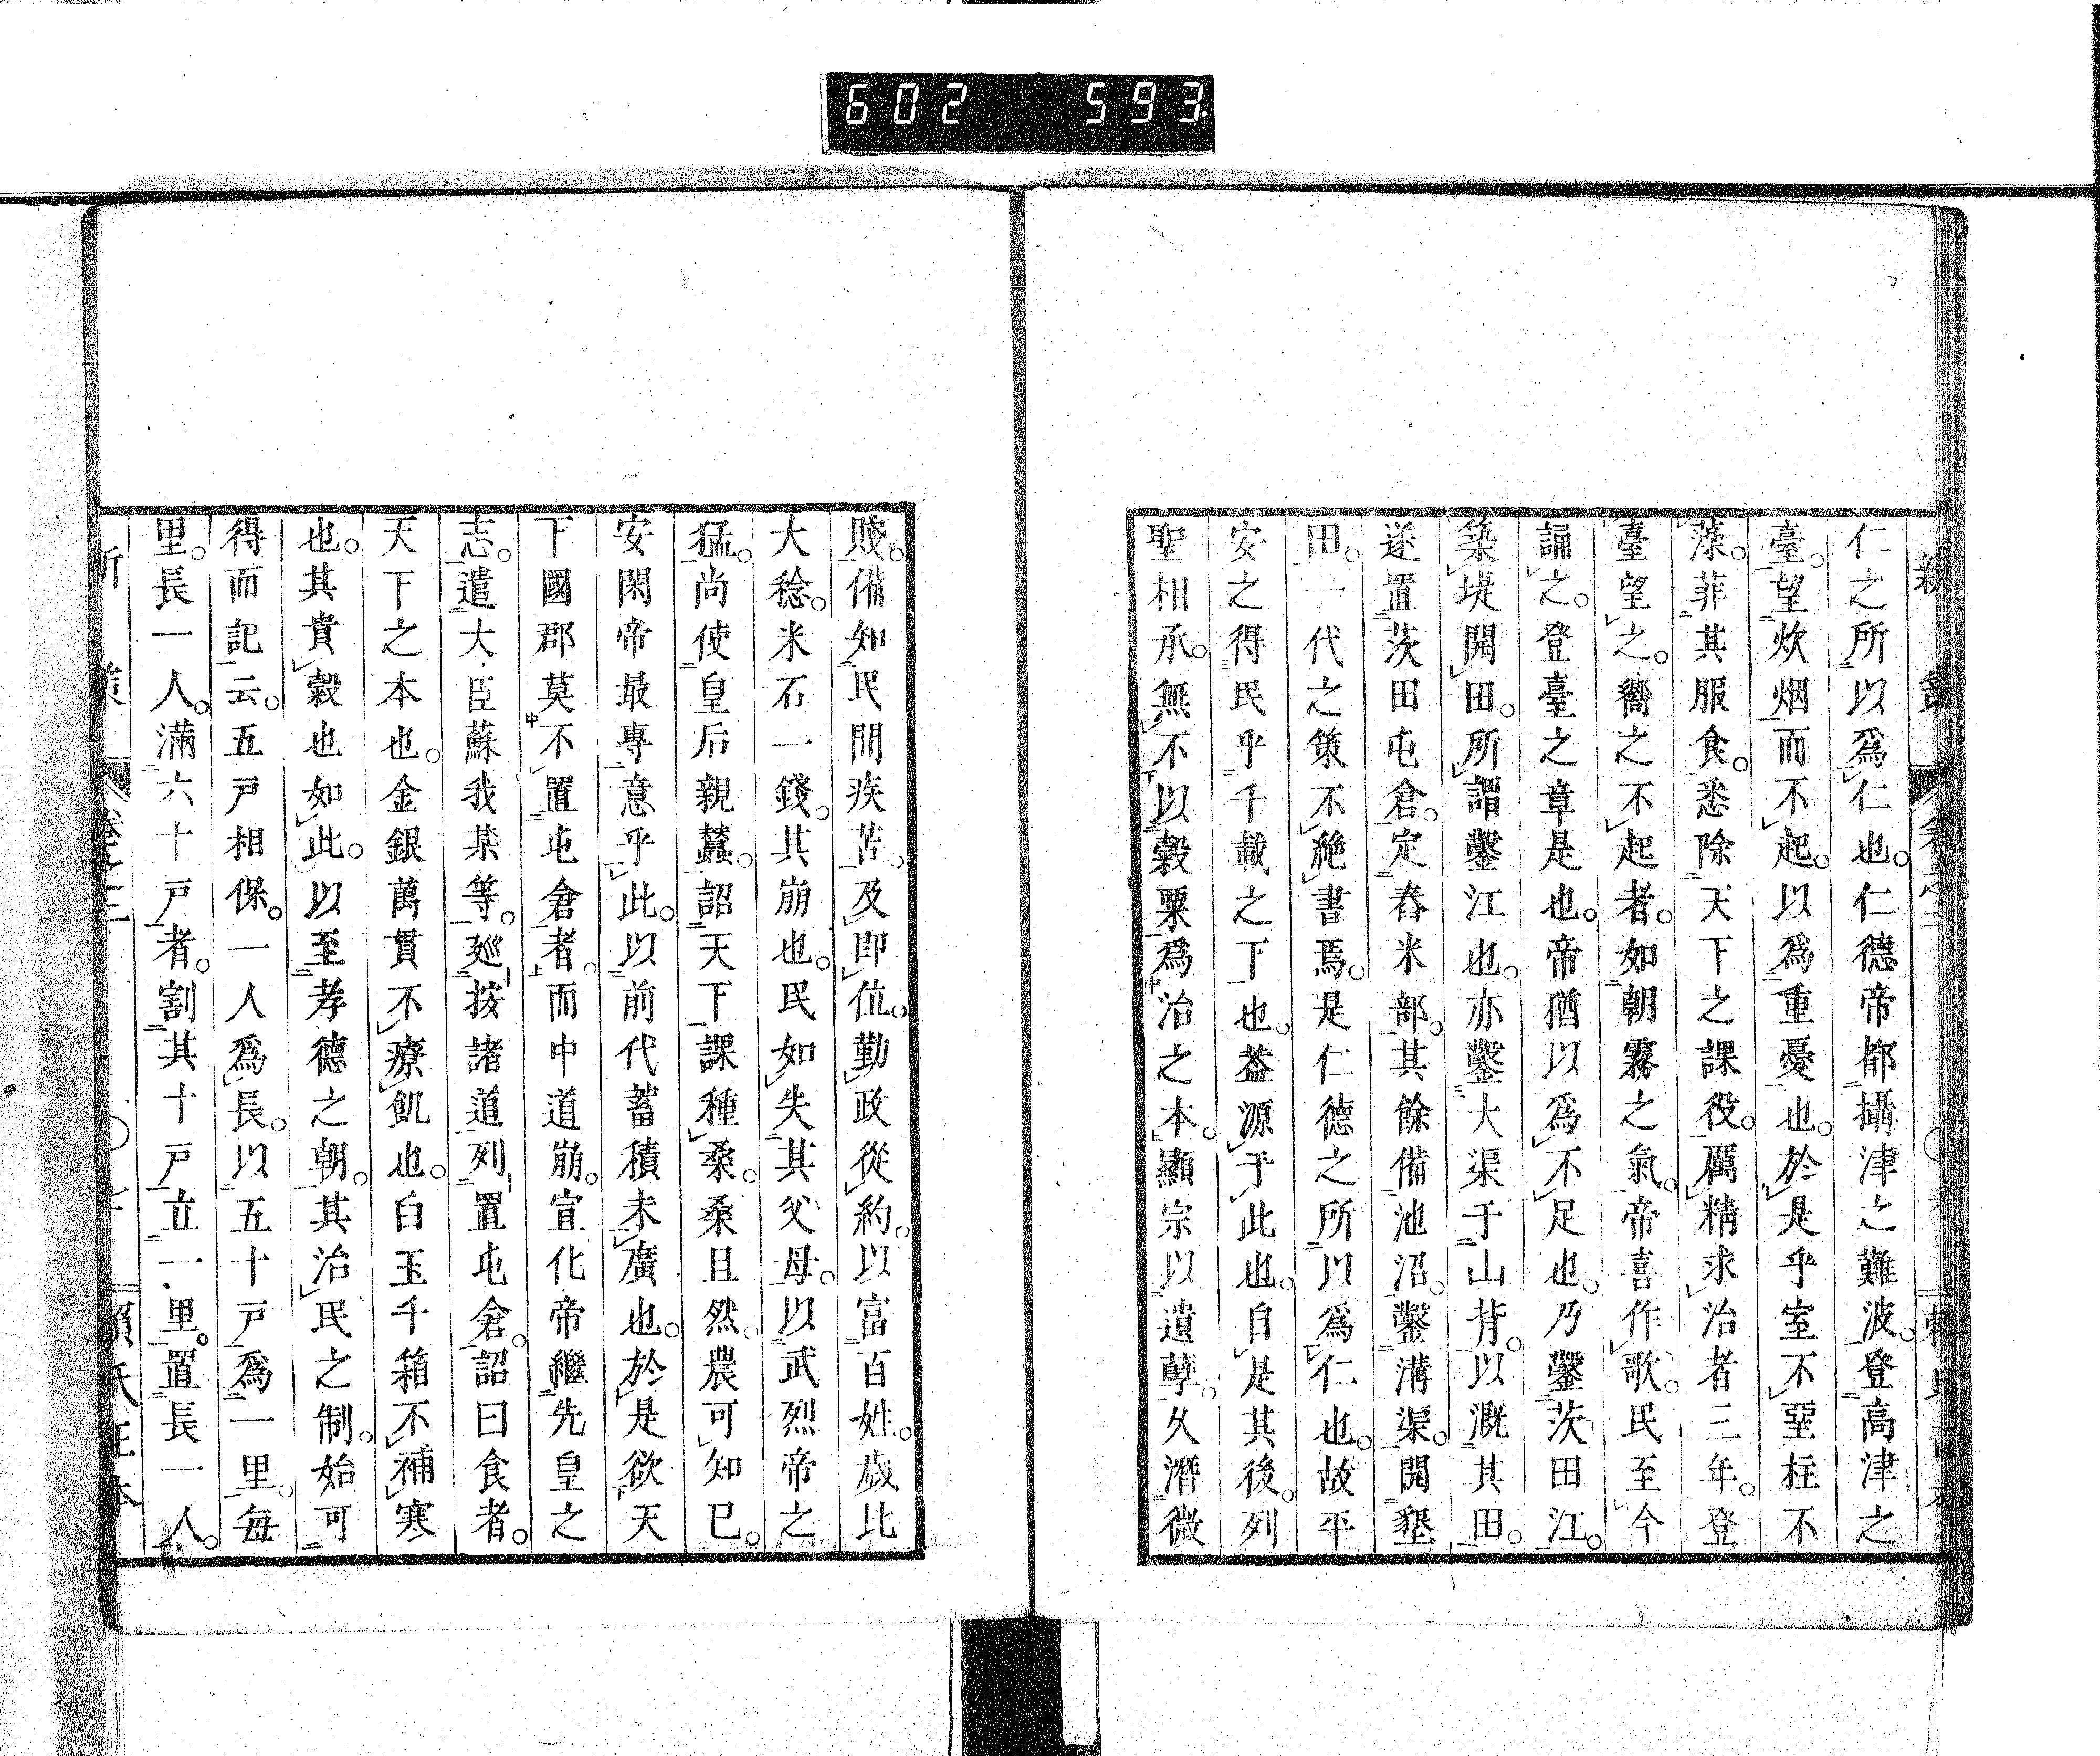 602 593
仁之所以爲仁也。仁德帝都攝津之難波。登高津之
臺。望炊烟而不起。以爲重憂也。於是乎室不堊柱不
藻。菲其服食。悉除天下之課役。厲精求治者三年。登
臺望之。嚮之不起者。如朝霧之氣。帝喜作歌。民至今
誦之。登臺之章是也。帝猶以爲不足也。乃鑿茨田江。
築堤開田。所謂鑿江也。亦鑿大渠于山背。以溉其田。
遂置茨田屯倉。定舂米部。其餘備池沼。鑿溝渠。開墾
田。一代之策不絶書焉。是仁德之所以爲仁也。故平
安之得民乎千載之下也。葢源于此也。自是其後。列
聖相承。無不以穀粟爲治之本。顯宗以遺孽。久潛微
賤。備知民間疾苦。及即位。勤政從約。以富百姓。歲比
大稔。米石一錢。其崩也。民如失其父母。以武烈帝之
猛。尚使皇后親蠶。詔天下課種桑。桑且然。農可知已。
安閑帝最專意乎此。以前代蓄積未廣也。於是欲天
下國郡莫不置屯倉者。而中道崩。宣化帝繼先皇之
志。遣大臣蘇我某等。巡按諸道列置屯倉。詔曰食者。
天下之本也。金銀萬貫不療飢也。白玉千箱不補寒
也。其貴穀也如此。以至孝德之朝。其治民之制。始可
得而記云。五戸相保。一人爲長。以五十戸爲一里。每
里。長一人。滿六十戸者。割其十戸立一里。置長一人。
新策 卷之三 賴氏正本